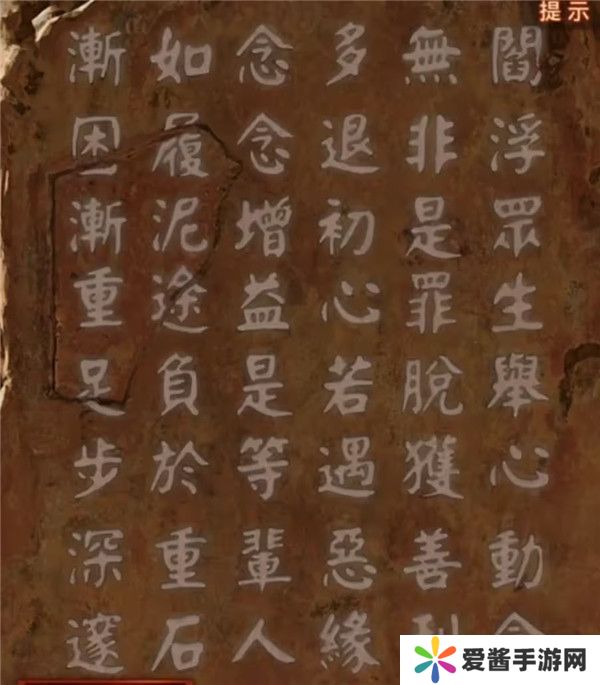 提示
閻浮眾生舉心動
無非是罪脫獲善
多退初心若遇惡緣
念念增益是等輩人
如履泥途負於重石
漸困漸重足步深邃
爱酱手游网